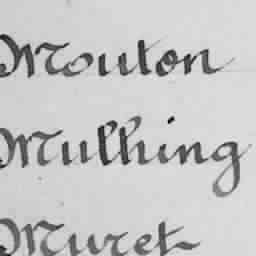 Mouton
Mulhing
Muret